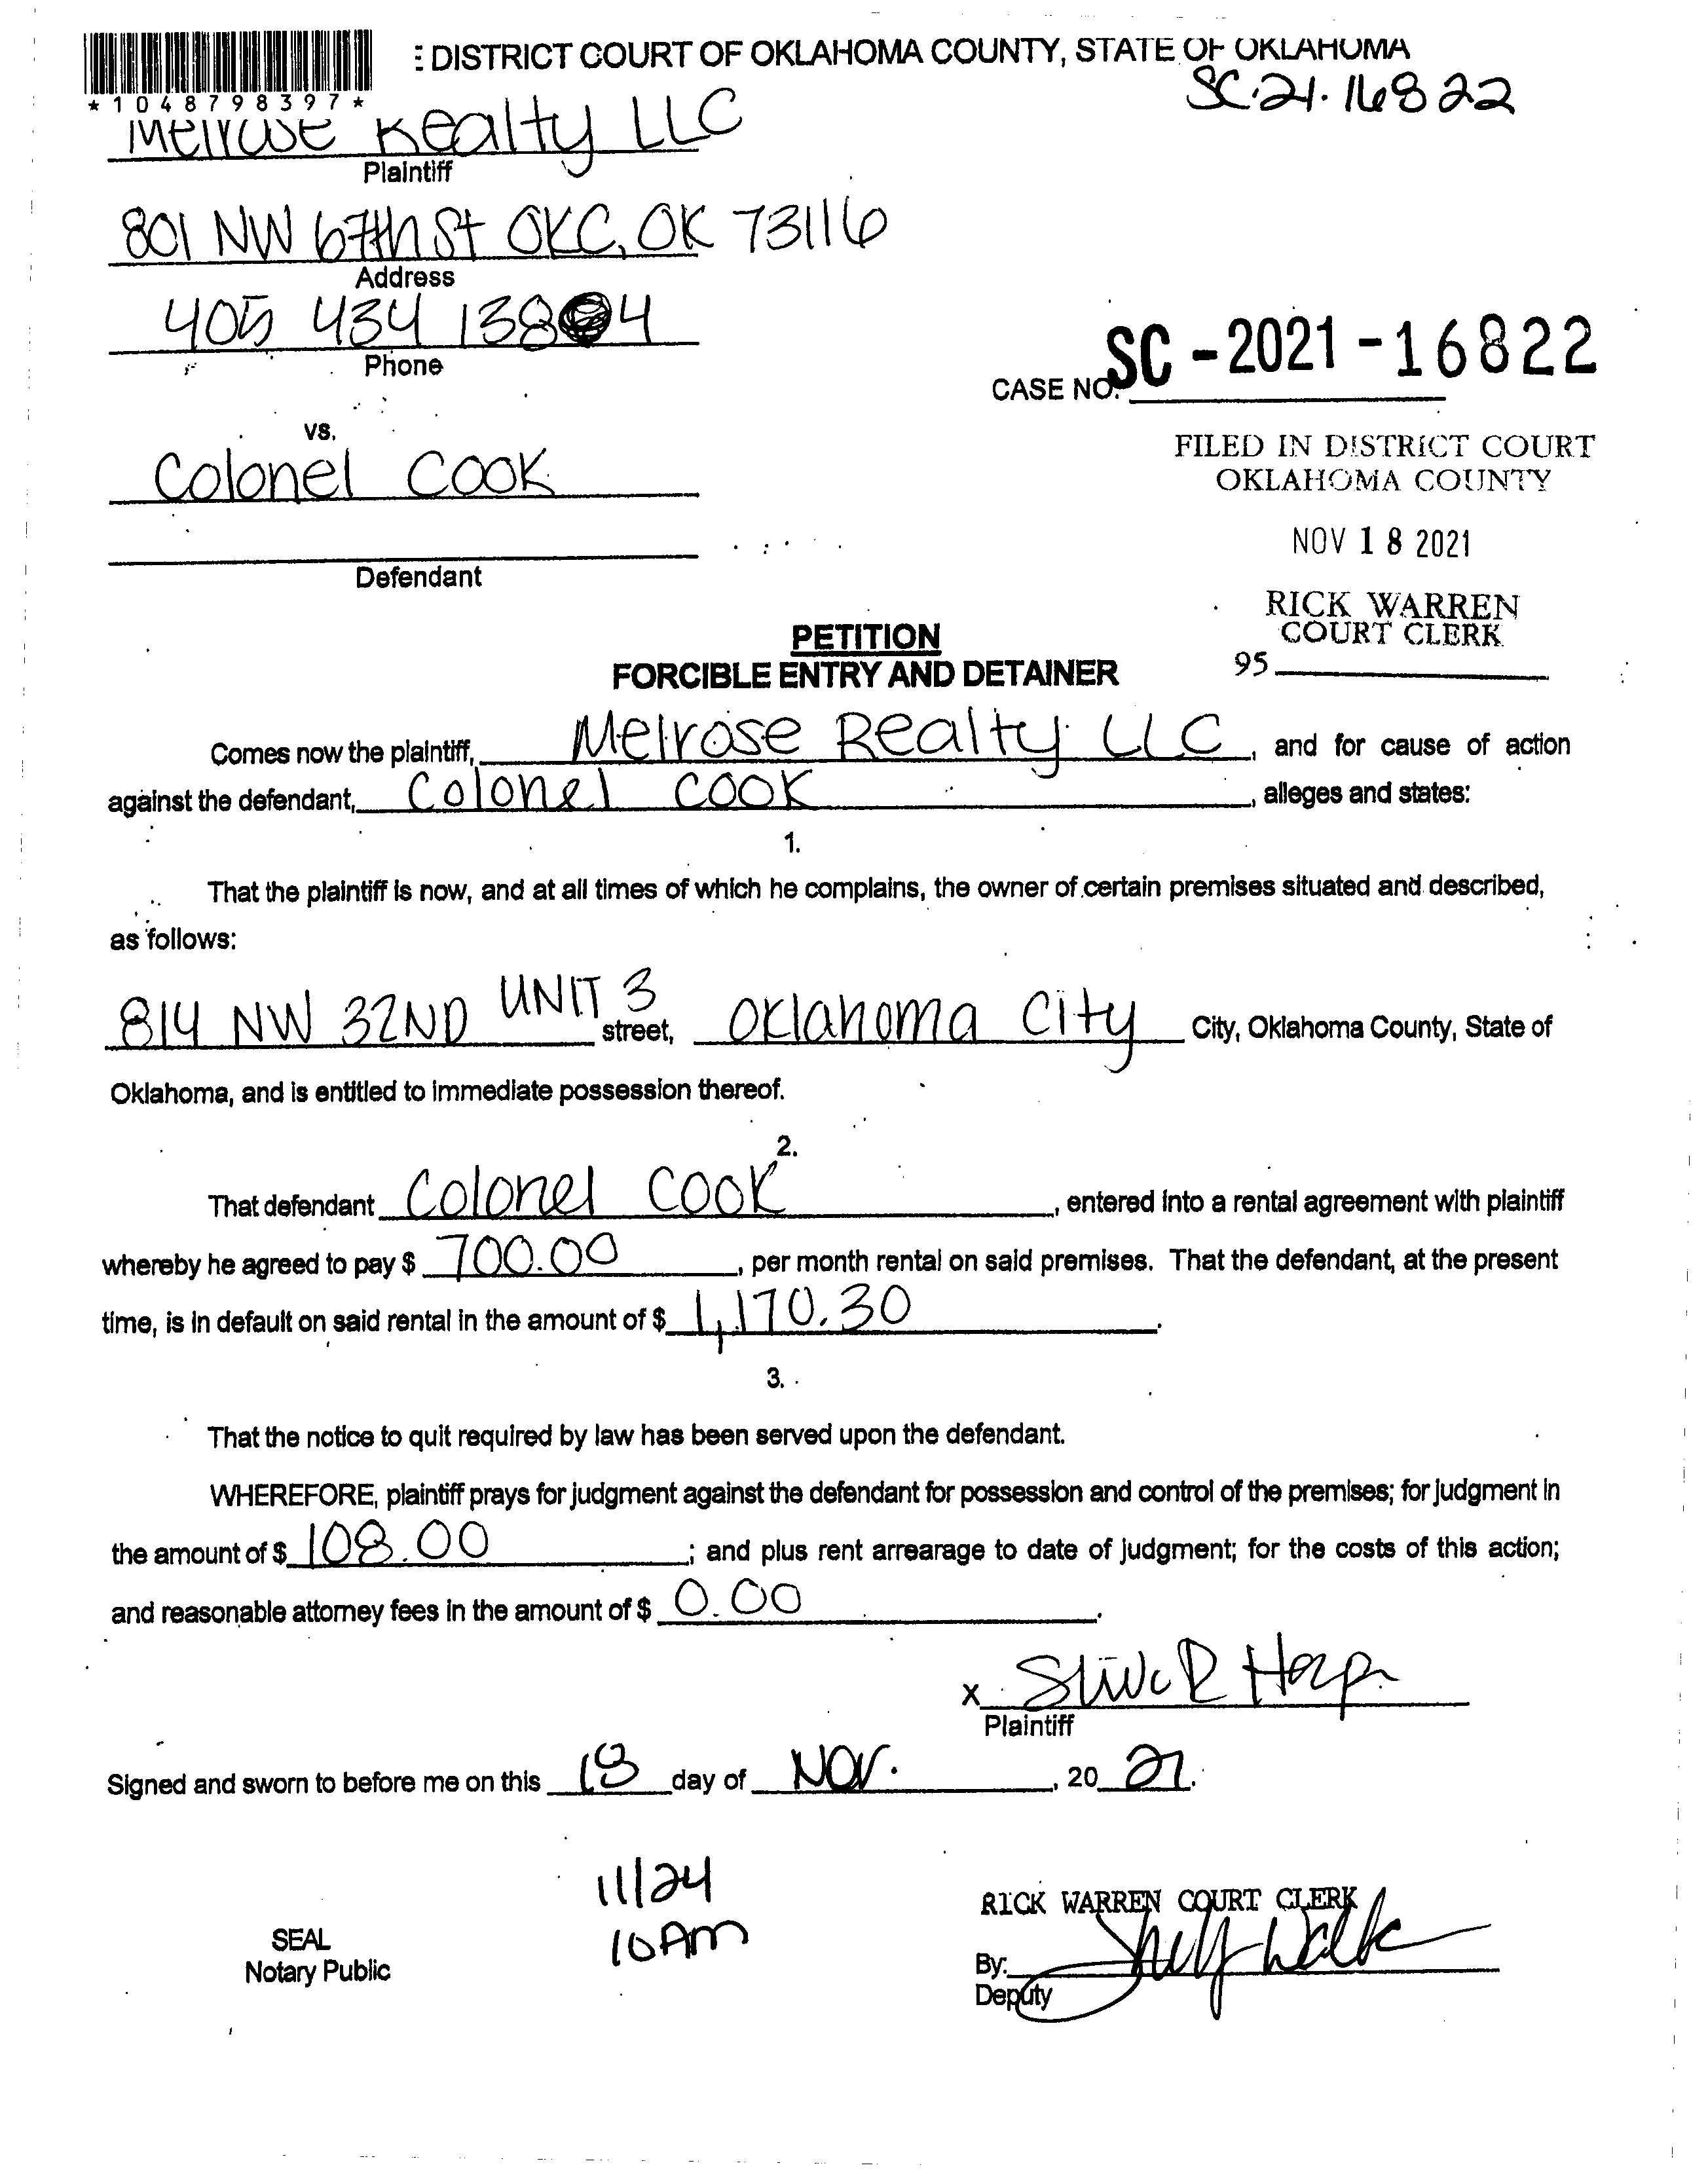 : DISTRICT COURT OF OKLAHOMA COUNTY, STATE OF OKLAHOMA
SC.21.16822
*1048798397*
Melrose Realty LLC
Plaintiff
801 NW 67th St OKC, OK 73116
Address
405 434 1384
Phone
CASE NO. SC-2021-16822
vs.
Colonel Cook
Defendant
FILED IN DISTRICT COURT
OKLAHOMA COUNTY
NOV 18 2021
RICK WARREN
COURT CLERK
95
PETITION
FORCIBLE ENTRY AND DETAINER
Comes now the plaintiff, Melrose Realty LLC, and for cause of action
against the defendant, Colonel Cook, alleges and states:
1.
That the plaintiff is now, and at all times of which he complains, the owner of certain premises situated and described,
as follows:
814 NW 32ND UNIT 3 street, Oklahoma City City, Oklahoma County, State of
Oklahoma, and is entitled to immediate possession thereof.
2.
That defendant Colonel Cook, entered into a rental agreement with plaintiff
whereby he agreed to pay $ 700.00, per month rental on said premises. That the defendant, at the present
time, is in default on said rental in the amount of $ 1,170.30.
3.
That the notice to quit required by law has been served upon the defendant.
WHEREFORE, plaintiff prays for judgment against the defendant for possession and control of the premises; for judgment in
the amount of $ 108.00; and plus rent arrearage to date of judgment; for the costs of this action;
and reasonable attorney fees in the amount of $ 0.00.
X
Plaintiff
Signed and sworn to before me on this 18 day of Nov., 20 21.
11/24
10 Am
SEAL
Notary Public
RICK WARREN COURT CLERK
By:
Deputy